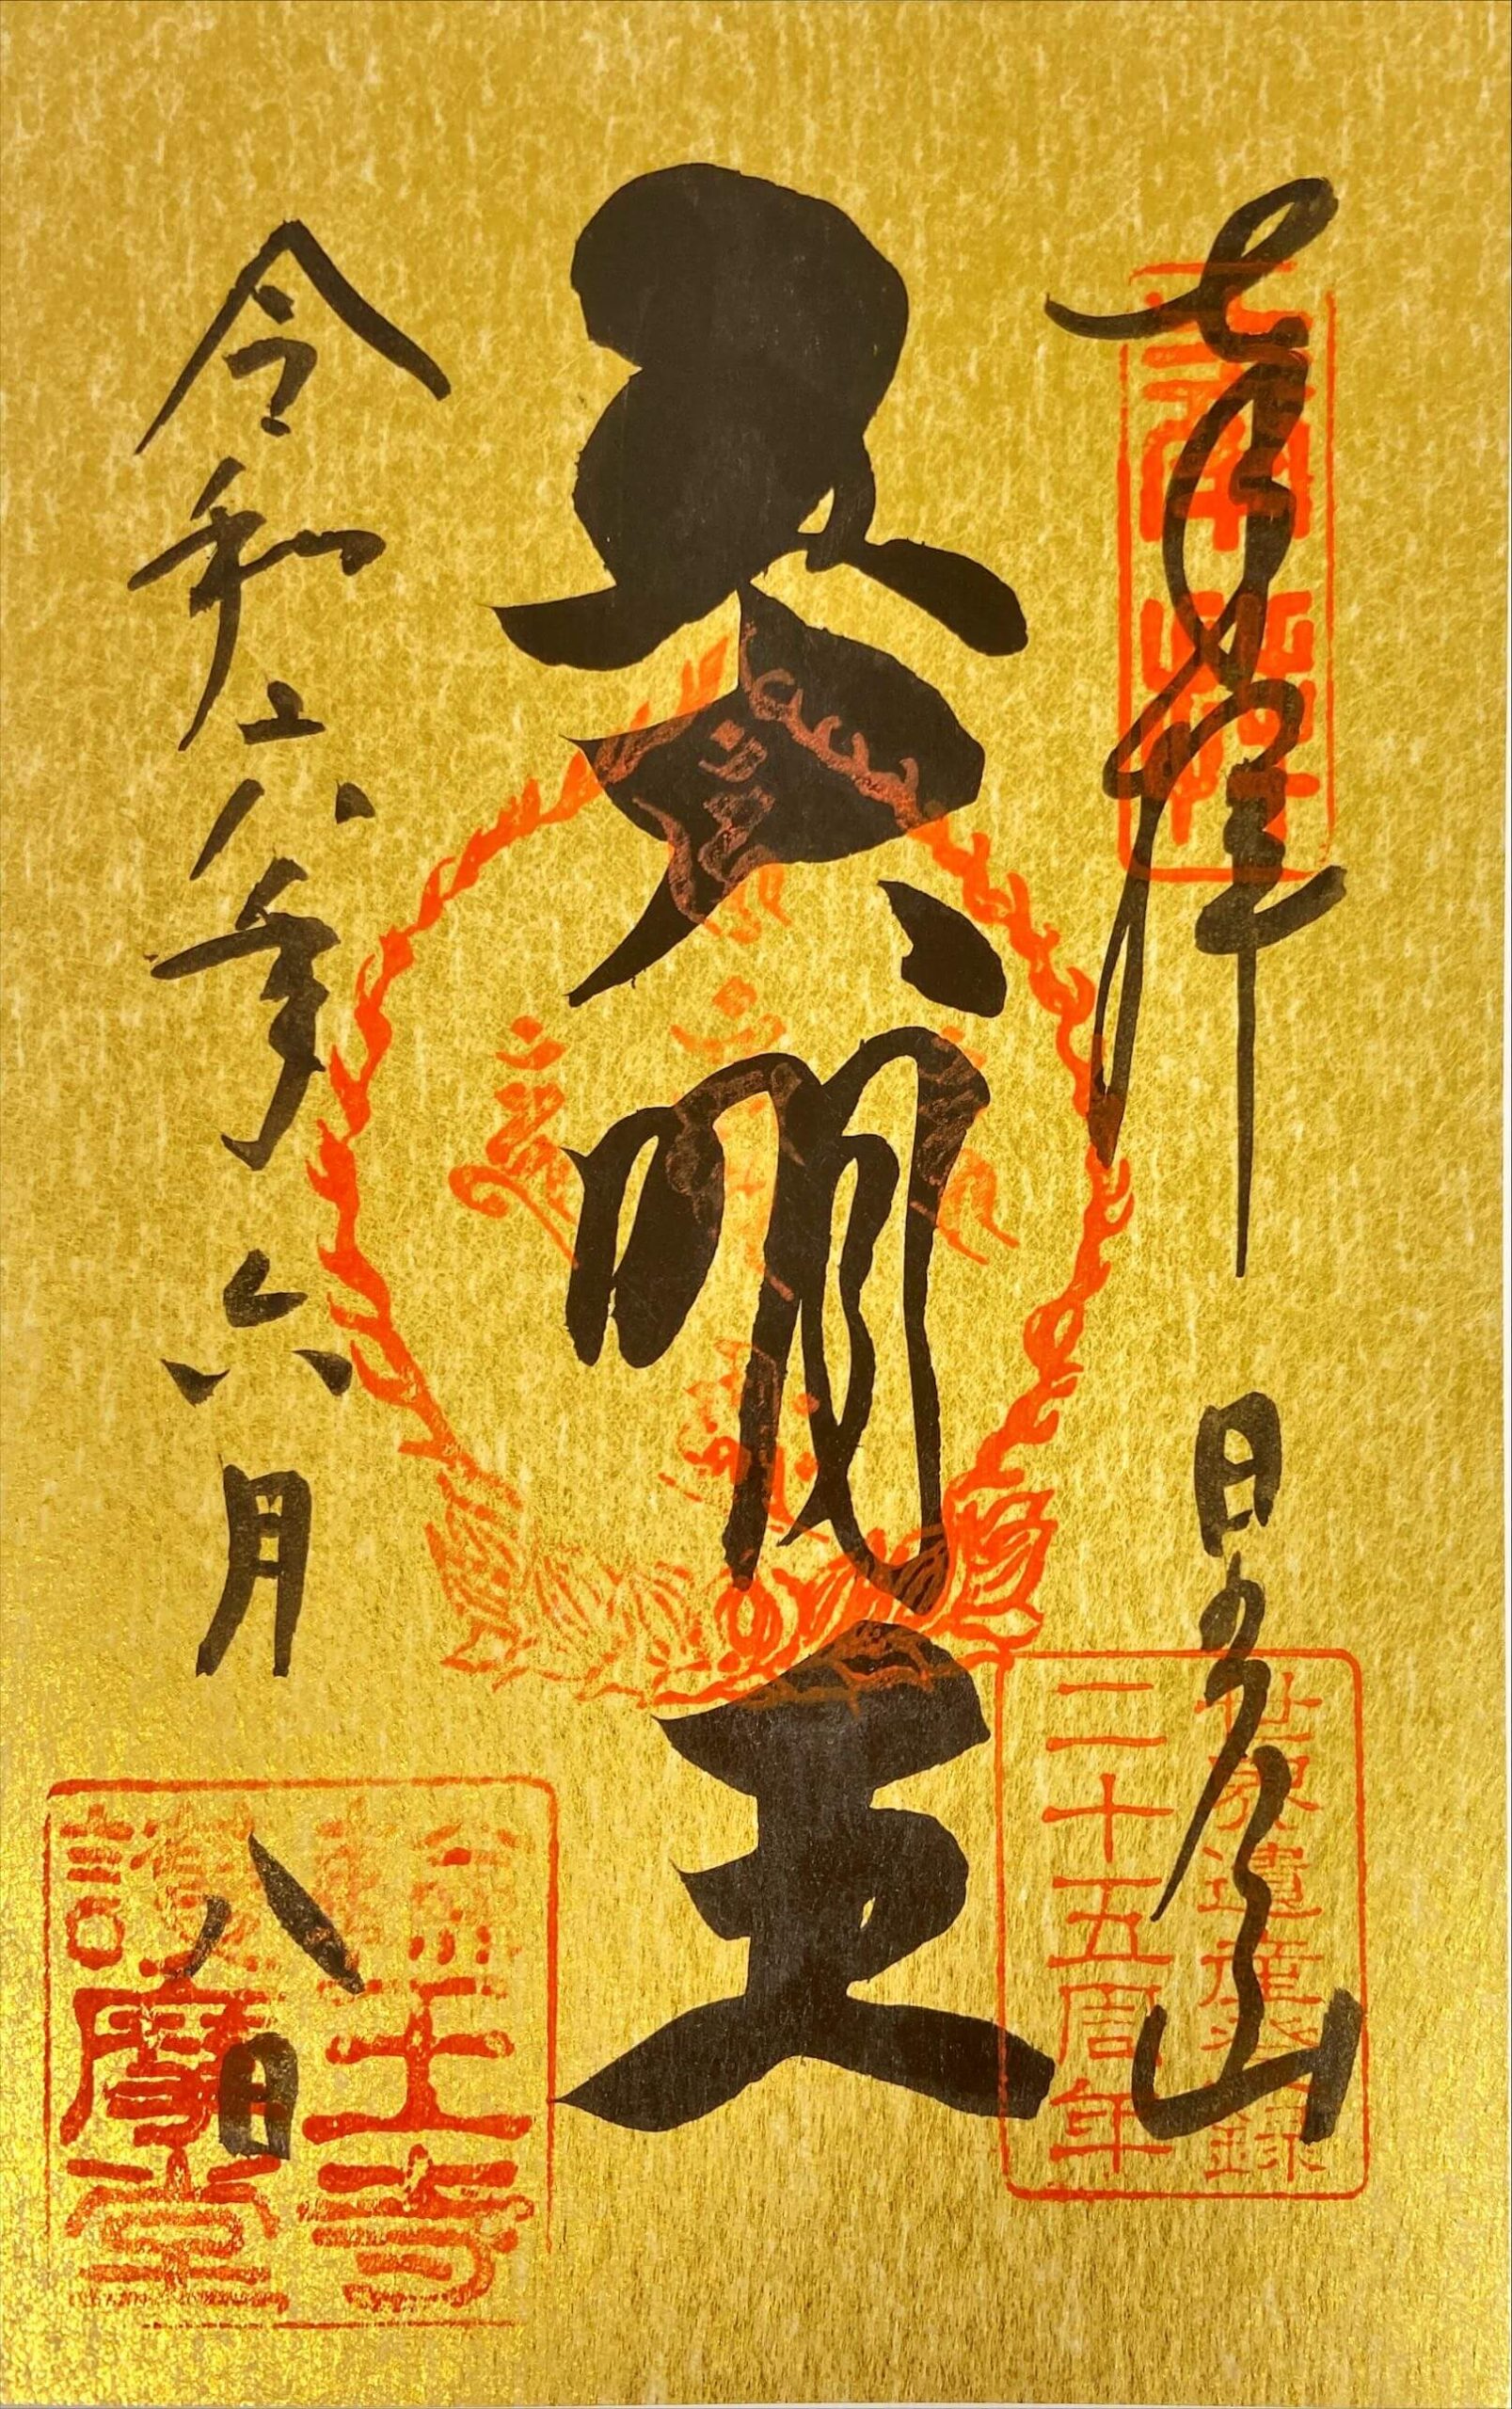 奉拝 日光山
世界遺産登録
二十五周年
五大明王
令和六年六月八日
輪王寺
護摩堂